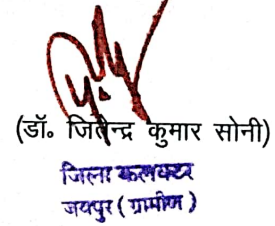 (डॉ० जितेन्द्र कुमार सोनी)
जिला कलक्टर
जयपुर (ग्रामीण)